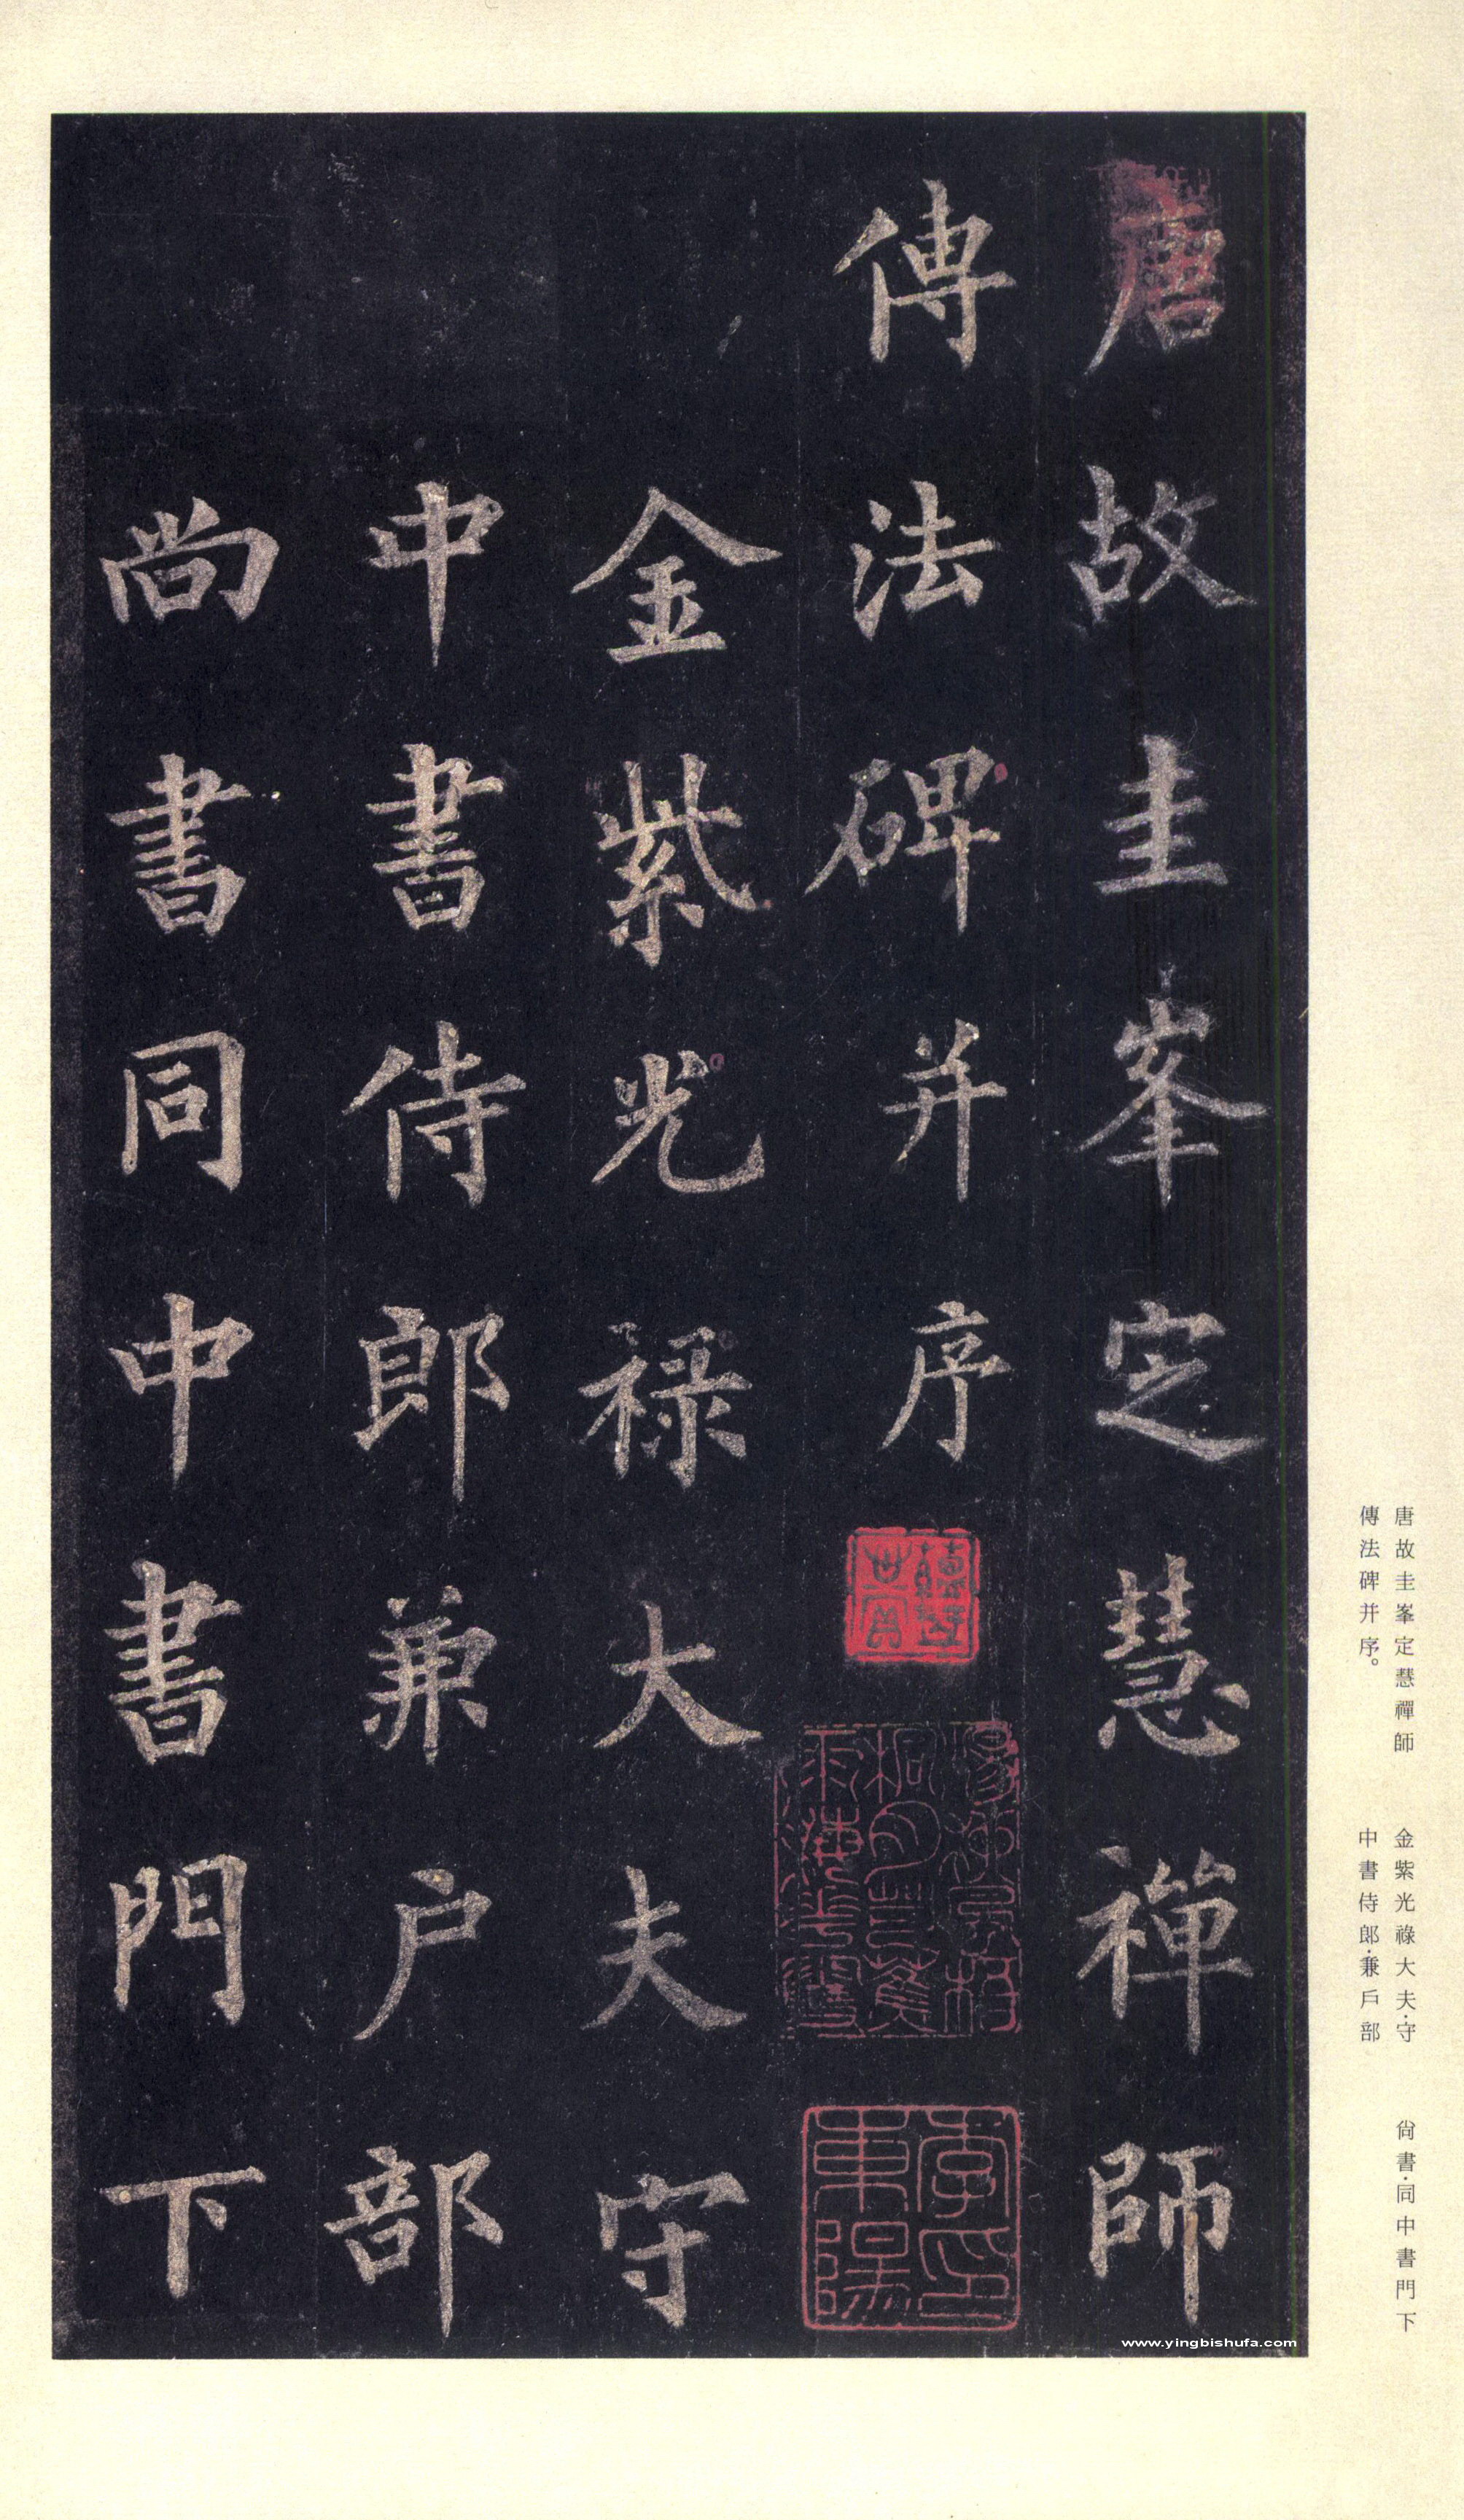 唐故圭峯定慧禪師
傳法碑并序
金紫光祿大夫守
中書侍郎兼戶部
尚書同中書門下
唐故圭峯定慧禪師
傳法碑并序。
金紫光祿大夫·守
中書侍郎·兼戶部
尚書·同中書門下
www.yingbishufa.com